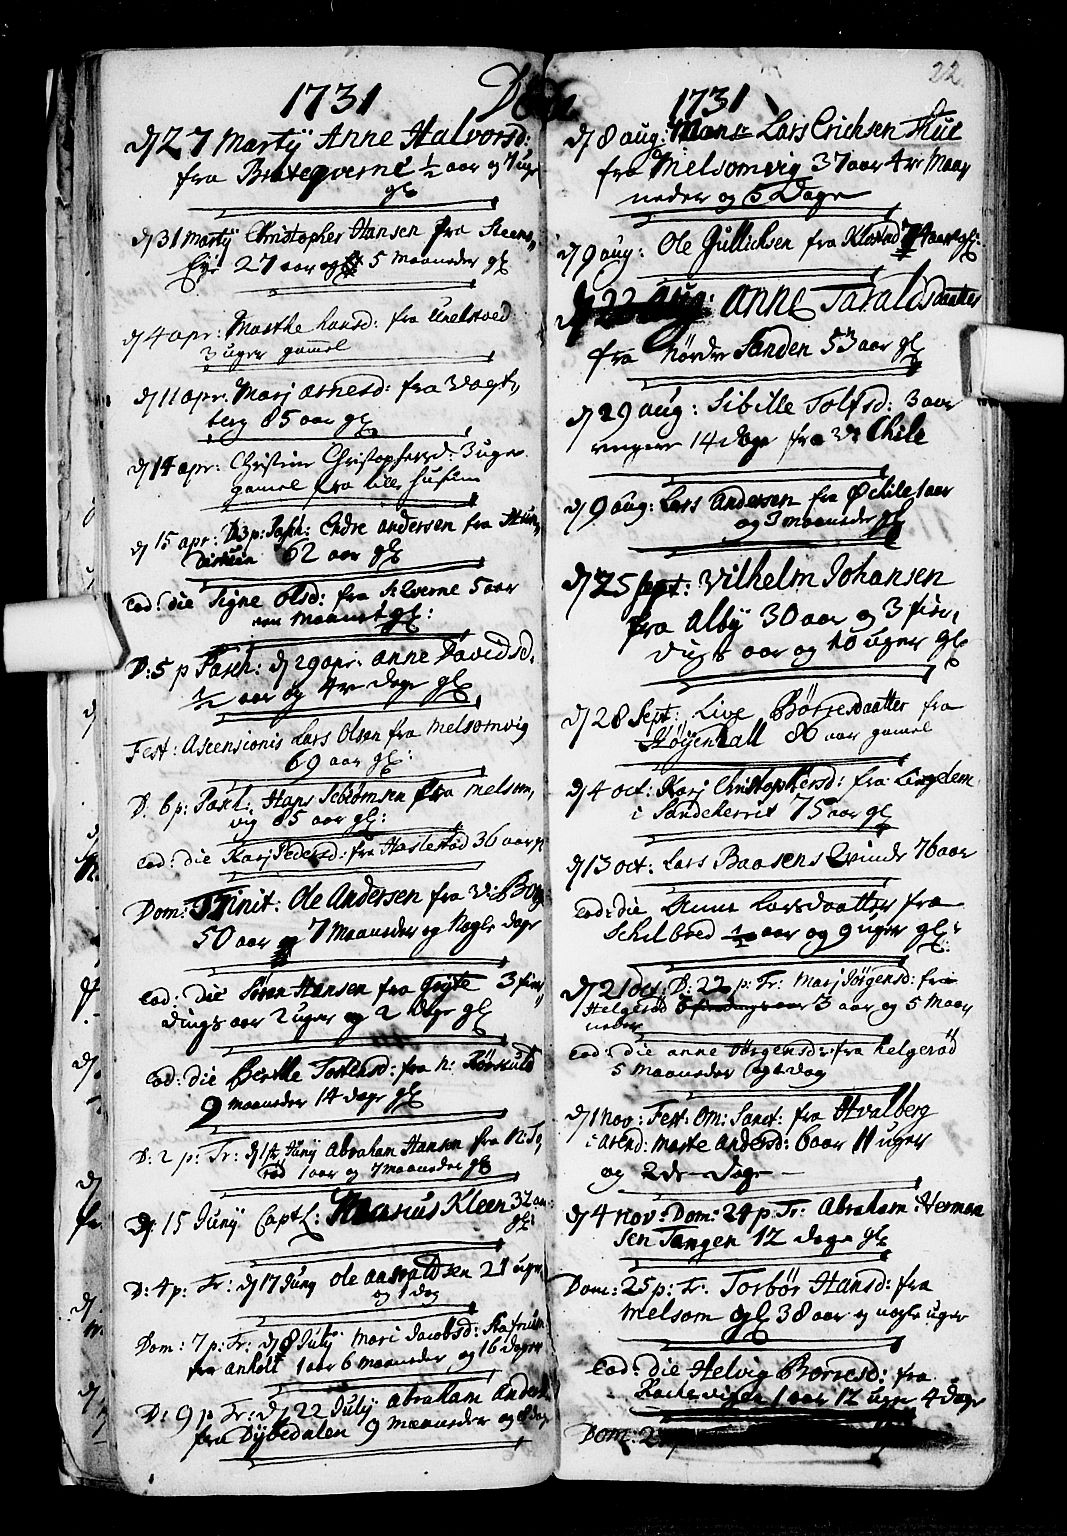 1731
d 27 Martij Anne Halvorsd:
fra Brateqverne ½ aar og 7 uger
gl
d 31 Martij Christopher Hansen fra Steens,
27 aar og 5 Maaneder gl
d 4 apr: Marthe hansd: fra Unelstved
3 uger gamel
d 11 apr: Marj arnesd: fra Vagt,
berg 85 aar gl
d 14 apr: Christine Christophersd: 3 uger
gamel fra lille husum
d 15 apr: D: 3 p: Pasch: Endre andersen fra
62 aar gl
eod: die Signe olsd: fra qverne 5 aar
een Maanet gl:
D: 5 p Pasch: d 29 apr: anne Davidsd.
½ aar og 4re dage gl
Fest: Ascensionis Lars Olsen fra Melsomvig
69 aar gl:
D: 6 p: Pasch: Hans fra Melsom,
vig 85 aar gl:
eod: die Karj Pedersd: fra Haslestad 36 aar g
Dom: Trinit: Ole Andersen fra
50 aar og 7 Maaneder og Nogle dage
eod: die Søren Hansen fra 3 fier,
dings aar 2 uger og 2 Dage gl
eod: die Berthe Torkelsd: fra n:
9 Maaneder 14 dage gl
D: 2 p: Tr: Junij Abraham Hansen fra
1 aar og 7 Maaneder gl
d 15 Junij Capt L: Marius Kleen 32 aar
gl:
D: 4 p: Tr: d 17 Junij Ole aasvaldsen 21 uger
og 1 dag
Dom: 7 p: Tr: d 8 Julij Mari Jacobsd:
fra anholt 1 aar 6 Maaneder og 16 dager
D: 9 p Tr: d 22 Julij abraham Anders
fra Dybedalen 9 Maaneder og 8 dage
22
1731
d 8 aug: Lars Erichsen Thue
fra Melsomvig 37 aar 4re Maa,
neder og 5 Dage
d 9 aug: Ole Gullichsen fra Klosted 74 aar gl:
d 22 aug: Anne Taraldsdaatter
fra Nørdre Sanden 53 aar gl
d 29 aug: Sibille Tolfsd: 3 aar
14 dage fra Chile
d 9 aug: Lars Andersen fra Ø Chile 1 aar
og 3 maaneder gl
d 25 Sept: Vilhelm Johansen
fra Alby 30 aar og 3 fier,
dings aar og 10 uger gl
d 28 Sept: Live Børresdaatter fra
Høyenhall 80 aar gamel
d 4 oct: Karj Christophersd: fra
i Sandeherrit 75 aar gl
d 13 oct: Lars Baasens Qvinde 76 aar
eod: die Anne Larsdaatter fra
Schilbred ½ aar og 9 uger gl:
d 21 oct: D: 22 p: Tr: Marj Jørgensd: fra
Helgerød 3 aar og 5 Maa,
neder
eod: die anne Jørgensd: fra helgerød
5 Maaneder og 1 dag
d 1 Nov: Fest: Om: Sanct: fra Hvalberg
i Marte Andersd: 6 aar 11 uger
og 2de Dage
d 4 nov: Dom: 24 p: Tr: Abraham: Herman
sen Tangen 12 dage gl
Dom: 25 p: Tr: Torbør Hansd: fra
Melsom gl 38 aar og nogle uger
eod: die Helvig Borresd: fra
1 aar 12 uger 4 dage
Dom: 2